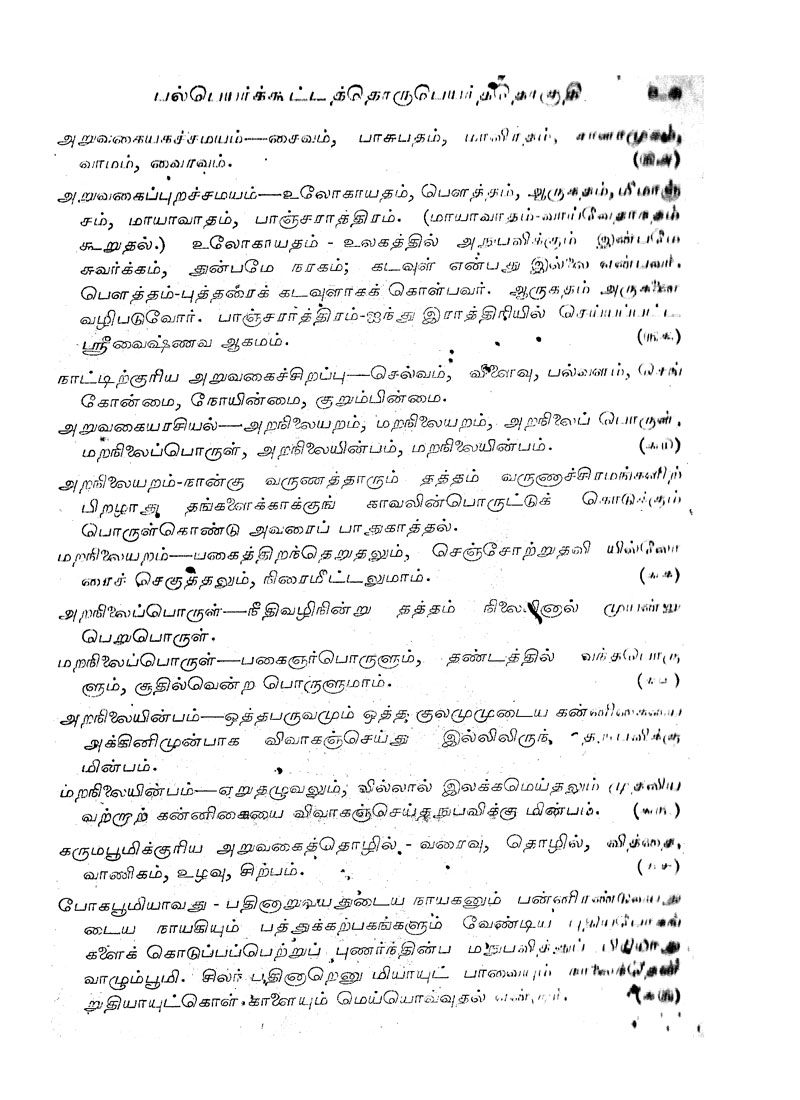 பல்பெயர்க்கூட்டத்தொருபெயர்த்தொகுதி
அறுவகையகச்சமயம்—சைவம், பாசுபதம், மாவிரதம், காளாமுகம்,
வாமம், வைரவம்.
அறுவகைப்புறச்சமயம்—உலோகாயதம், பௌத்தம், ஆருகதம், மீமாஞ்
சம், மாயாவாதம், பாஞ்சராத்திரம். (மாயாவாதம்-வாய்
கூறுதல்.) உலோகாயதம் - உலகத்தில் அநுபவிக்கும் இன்பமே
சுவர்க்கம், துன்பமே நரகம்; கடவுள் என்பது இல்லை என்பவர்.
பௌத்தம்-புத்தரைக் கடவுளாகக் கொள்பவர். ஆருகதம் அருகனை
வழிபடுவோர். பாஞ்சரார்த்திரம்-ஐந்து இராத்திரியில் செய்யப்பட்ட
ஸ்ரீவைஷ்ணவ ஆகமம்.
நாட்டிற்குரிய அறுவகைச்சிறப்பு—செல்வம், விளைவு, பல்வளம், செங்
கோண்மை, நோயின்மை, குறும்பின்மை.
அறுவகையரசியல்—அறநிலையறம், மறநிலையறம், அறநிலைப் பொருள்,
மறநிலைப்பொருள், அறநிலையின்பம், மறநிலையின்பம். (௪௰)
அறநிலையறம்-நான்கு வருணத்தாரும் தத்தம் வருணாச்சிரமங்களிற்
பிறழாது தங்களைக்காக்குங் காவலின்பொருட்டுக் கொடுக்கும்
பொருள்கொண்டு அவரைப் பாதுகாத்தல்.
மறநிலையறம்—பகைத்திறந்தெறுதலும், செஞ்சோற்றுதவி யில்லோ
ரைச் செகுத்தலும், நிரைமீட்டலுமாம். (௪௧)
அறநிலைப்பொருள்—நீதிவழிநின்று தத்தம் நிலையினால் முயன்று
பெறுபொருள்.
மறநிலைப்பொருள்—பகைஞர்பொருளும், தண்டத்தில் வந்தபொரு
ளும், சூதில்வென்ற பொருளுமாம். (௪௨)
அறநிலையின்பம்—ஒத்தபருவமும் ஒத்த குலமுமுடைய கன்னிகையை
அக்கினிமுன்பாக விவாகஞ்செய்து இல்லிலிருந் தநுபவிக்கு
மின்பம்.
மறநிலையின்பம்—ஏறுதழுவலும், வில்லால் இலக்கமெய்தலும் முதலிய
வற்றாற் கன்னிகையை விவாகஞ்செய்தநுபவிக்கு மின்பம். (௪௩)
கருமபூமிக்குரிய அறுவகைத்தொழில் - வரைவு, தொழில், வித்தை,
வாணிகம், உழவு, சிற்பம். (௪௪)
போகபூமியாவது - பதினாறுவயதுடைய நாயகனும் பன்னிரண்டுவயது
டைய நாயகியும் பத்துக்கற்பகங்களும் வேண்டிய
களைக் கொடுப்பப்பெற்றுப் புணர்ந்தின்ப மநுபவித்துப் பிரியாது
வாழும்பூமி. சிலர் பதினாறெனு மியாயுட் பாவையும்
றுதியாயுட்கொள் காளையும் மெய்யொவ்வுதல் என்றார். (௪௫)